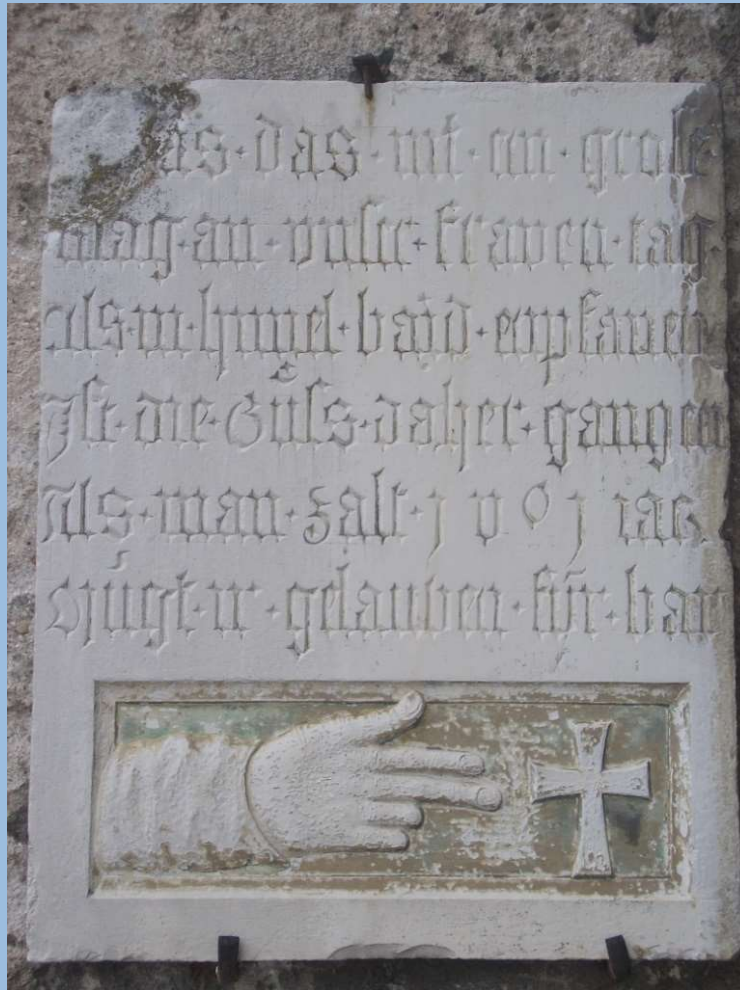 as · das · nit · an · grose
mag · an · vnser · fraven · tag
als · in · himel · baid · enpfanen
Ist · die · Güss · daher · gangen
Als · man · zalt · 1 v 0 1 iar
Mügt · ir · gelauben · für · bar